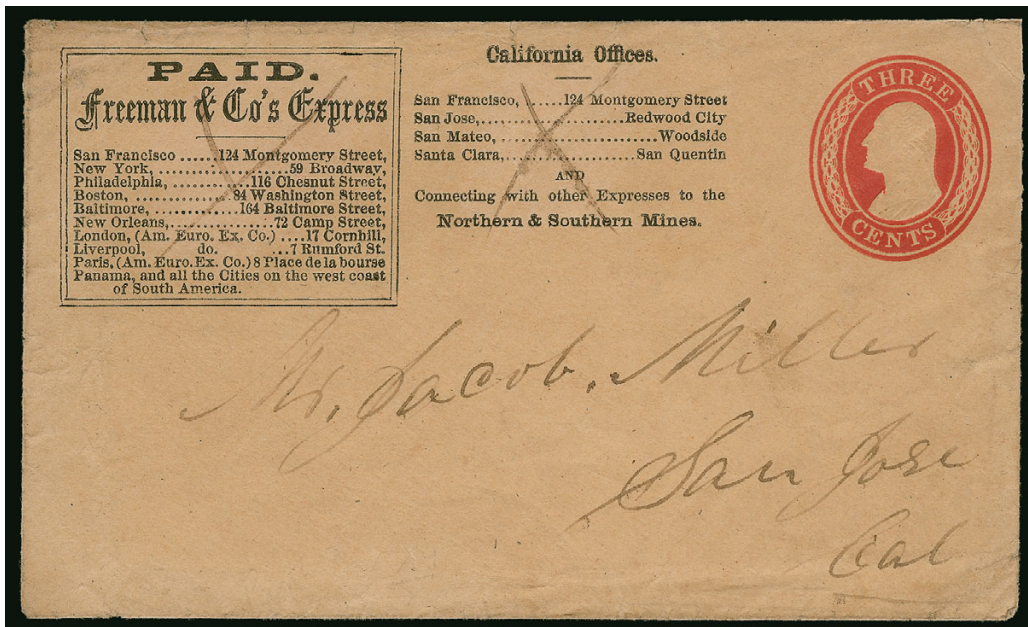 PAID.
Freeman & Co's Express
San Francisco ......124 Montgomery Street,
New York, ....................59 Broadway,
Philadelphia, ............116 Chesnut Street,
Boston, ...............84 Washington Street,
Baltimore, ............164 Baltimore Street,
New Orleans,..................72 Camp Street,
London, (Am. Euro. Ex. Co.) ....17 Cornhill,
Liverpool, do. ...7 Rumford St.
Paris, (Am. Euro. Ex. Co.) 8 Place de la bourse
Panama, and all the Cities on the west coast
of South America.
California Offices.
San Francisco, .....124 Montgomery Street
San Jose,.......................Redwood City
San Mateo, ..........................Woodside
Santa Clara,.....................San Quentin
AND
Connecting with other Expresses to the
Northern & Southern Mines.
THREE
CENTS
Mr. Jacob. Miller
San Jose
Cal